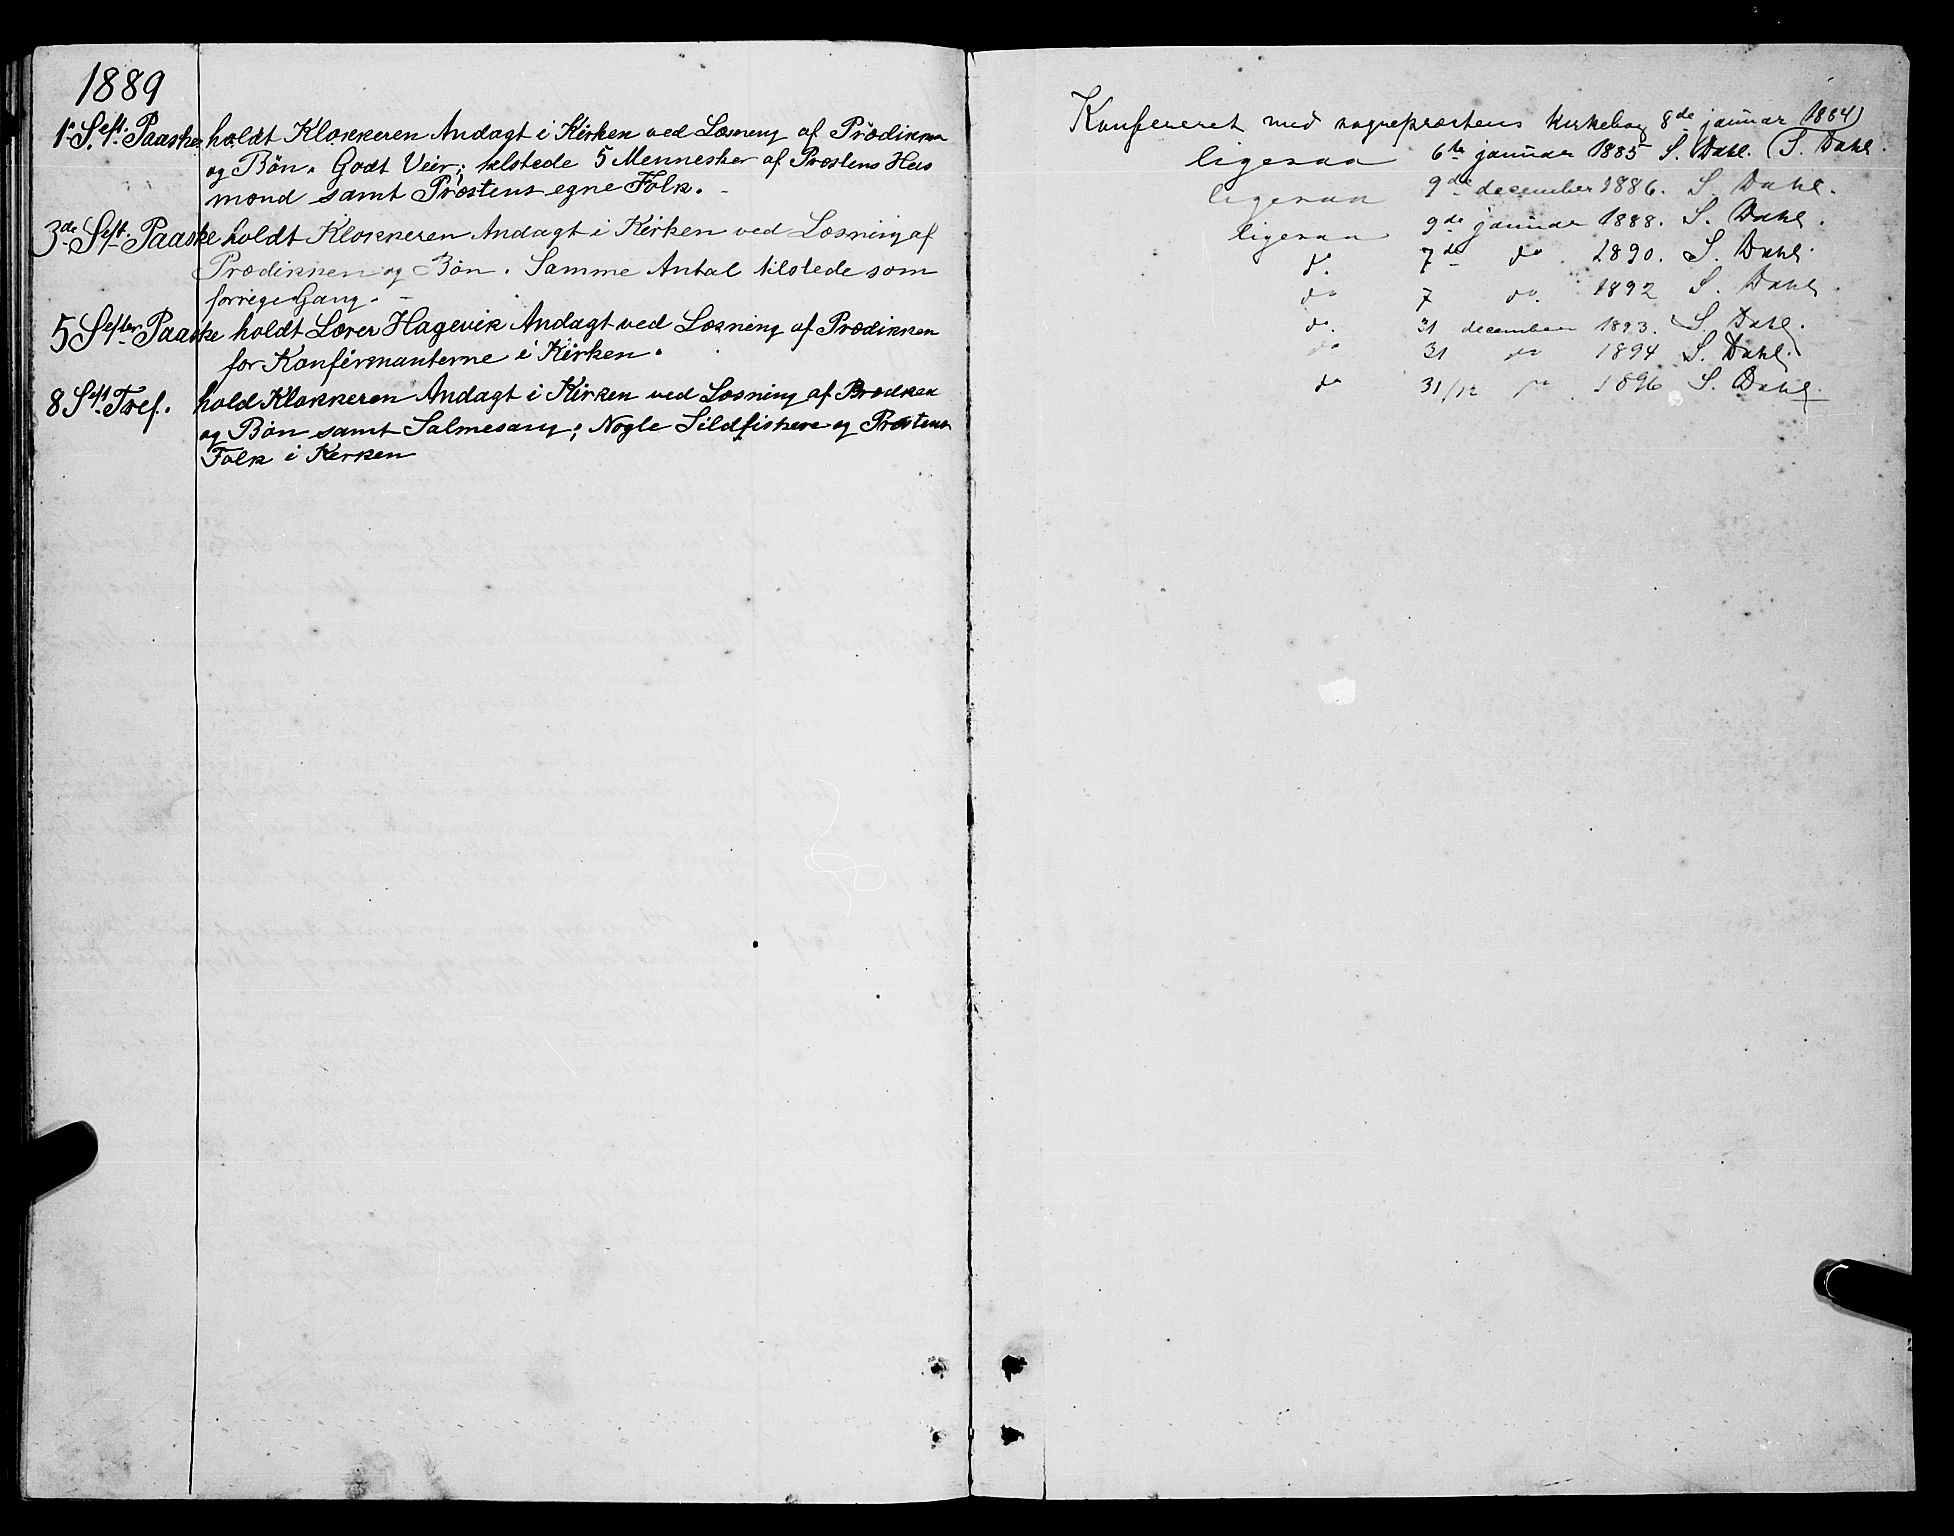 1889
1. S. eft. Paaske holdt Klokkeren Andagt i Kirken ved Læsning af Prædiken
og Bön. Godt Veir; tilstede 5 Mennesker af Præstens Hus
mænd samt Præstens egne Folk.
3de S. eft. Paaske holdt Klokkeren Andagt i Kirken ved Læsning af
Prædikken og Bön. Samme Antal tilstede som
forrige Gang.
5 S. efter Paaske holdt Lærer Hagevik Andagt ved Læsning af Prædikken
for Konfirmanterne i Kirken.
8 S. eft Tref. hold Klokkeren Andagt i Kirken ved Læsning af Prædken
og Bön samt Salmesang; Nogle Sildfiskere og Præstens
Folk i Kirken
Konfereret med sogneprestens kirkebog 8de januar 1884
ligesaa 6te januar 1885 S. Dahl. (S. Dahl.
ligesaa 9de december 1886. S. Dahl.
ligesaa 9de januar 1888. S. Dahl.
do. 7de do 1890. S. Dahl.
do 7 do. 1892 S. Dahl.
do. 31 december 1893. S. Dahl.
do 31 do 1894 S. Dahl.
do 31/12 do 1896 S. Dahl.